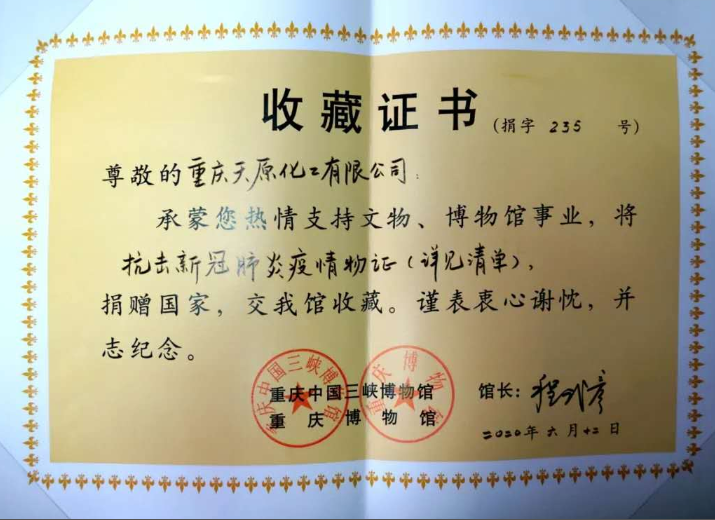 收藏证书
(捐字 235 号)
尊敬的重庆天原化工有限公司：
承蒙您热情支持文物、博物馆事业，将
抗击新冠肺炎疫情物证（详见清单），
捐赠国家，交我馆收藏。谨表衷心谢忱，并
志纪念。
重庆中国三峡博物馆
重庆博物馆
重庆中国三峡博物馆
重庆博物馆
馆长：程武彦
二〇二〇年六月十二日